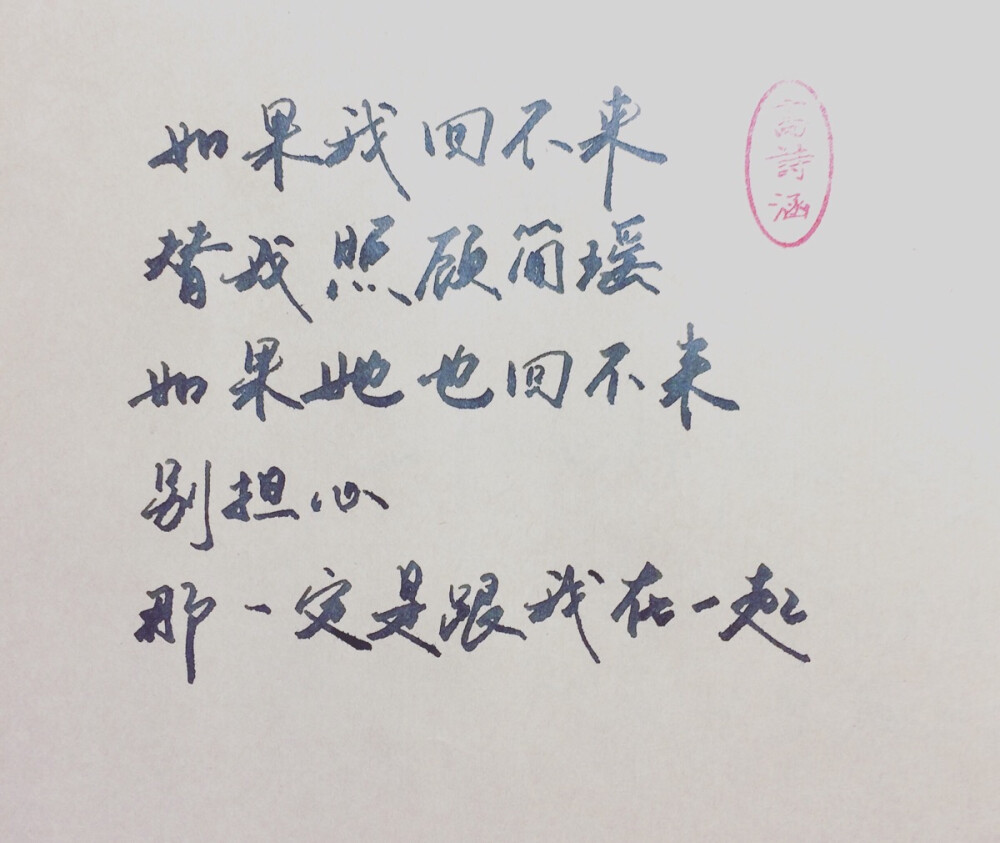 如果我回不来
替我照顾简瑶
如果她也回不来
别担心
那一定是跟我在一起
高詩涵